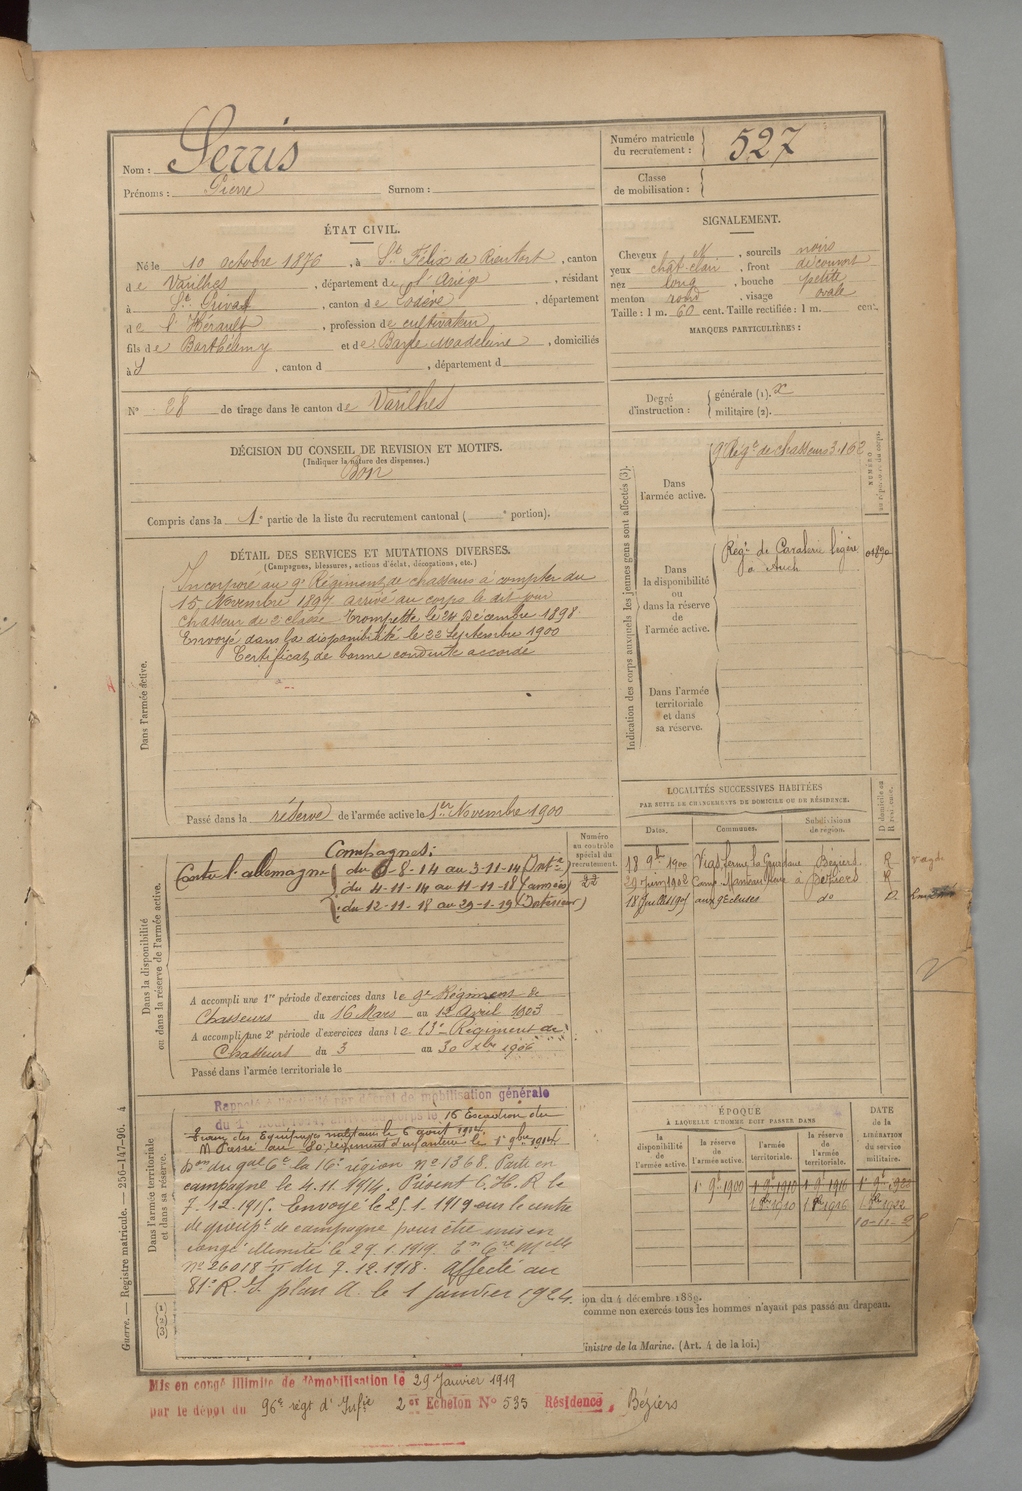 Nom : Serris
Prénoms : Pierre Surnom :
Numéro matricule du recrutement : 527
Classe de mobilisation :
ÉTAT CIVIL.
Né le 10 octobre 1876, à St Félix de Rieutort, canton
de Varilhes, département de l'Ariège, résidant
à St Privat, canton de Lodève, département
de l'Hérault, profession de cultivateur
fils de Barthélemy et de Bayle Madeleine, domiciliés
à d, canton d, département d
SIGNALEMENT.
Cheveux N, sourcils noirs
yeux chat clair, front découvert
nez long, bouche petite
menton rond, visage ovale
Taille : 1 m. 60 cent. Taille rectifiée : 1 m. cent.
MARQUES PARTICULIÈRES :
N° 28 de tirage dans le canton de Varilhes
Degré d'instruction : générale (1). x
militaire (2).
DÉCISION DU CONSEIL DE REVISION ET MOTIFS.
(Indiquer la nature des dispenses.)
Bon
Compris dans la 1e partie de la liste du recrutement cantonal ( e portion).
DÉTAIL DES SERVICES ET MUTATIONS DIVERSES.
(Campagnes, blessures, actions d'éclat, décorations, etc.)
Dans l'armée active.
Incorporé au 9e Régiment de chasseurs à compter du
15 Novembre 1897 arrivé au corps le dit jour
chasseur de 2e classe Trompette le 24 Décembre 1898
Envoyé dans la disponibilité le 22 Septembre 1900
Certificat de bonne conduite accordé
Passé dans la réserve de l'armée active le 1er Novembre 1900
Indication des corps auxquels les jeunes gens sont affectés (3).
NUMÉRO
Dans l'armée active.
9e Régt de chasseurs 3.162
Dans la disponibilité ou dans la réserve de l'armée active.
Régt de Cavalerie légère
à Auch
01890
Dans l'armée territoriale et dans sa réserve.
LOCALITÉS SUCCESSIVES HABITÉES
PAR SUITE DE CHANGEMENTS DE DOMICILE OU DE RÉSIDENCE.
Dates. Communes. Subdivisions de région. D domicile ou R résidence.
18 9bre 1900 Vias, ferme la Béziers R
29 Juin 1902 à Béziers R
18 Juillet 1907 aux 9 Ecluses do D
Dans la disponibilité ou dans la réserve de l'armée active.
Numéro au contrôle spécial du recrutement.
22
Campagnes :
Contre l'allemagne du 6-8-14 au 3-11-14 (Intre)
du 4-11-14 au 11-11-18 (armées)
du 12-11-18 au 29-1-19 (Intérieur)
A accompli une 1re période d'exercices dans le 9e Régiment de
Chasseurs du 16 Mars au 12 Avril 1903
A accompli une 2e période d'exercices dans le 13e Régiment de
Chasseurs du 3 au 30 1906
Passé dans l'armée territoriale le
Dans l'armée territoriale et dans sa réserve.
Rappelé à l'activité par décret de mobilisation générale
16 Escadron du
Train des Equipages militaires le 6 août 1914
Passé au 80 régiment d'infanterie le 1er 9bre 1914
Don du gal Ct la 16e région n° 1368. Parti en
campagne le 4.11.1914. Présent C.H.R le
7-12-1915. Envoyé le 25-1-1919 sur le centre
de group.t de campagne pour être mis en
congé illimité le 29.1.1919.
n° 26018 du 7.12.1918. Affecté au
81e R.I. plan A. le 1 janvier 1924.
ÉPOQUE
À LAQUELLE L'HOMME DOIT PASSER DANS
la disponibilité de l'armée active. la réserve de l'armée active. l'armée territoriale. la réserve de l'armée territoriale.
DATE de la LIBÉRATION du service militaire.
1er 9bre 1900 1er 9bre 1910 1er 9bre 1916 1er 9bre 1922
1 8bre 1910 1 8bre 1916 1 8bre 1922
ion du 4 décembre 1889.
comme non exercés tous les hommes n'ayant pas passé au drapeau.
inistre de la Marine. (Art. 4 de la loi.)
Guerre. — Registre matricule. — 256-147-96. 4
Mis en congé illimité de démobilisation le 29 Janvier 1919
par le dépôt du 96e régt d'Infie 2e Echelon N° 535 Résidence, Béziers